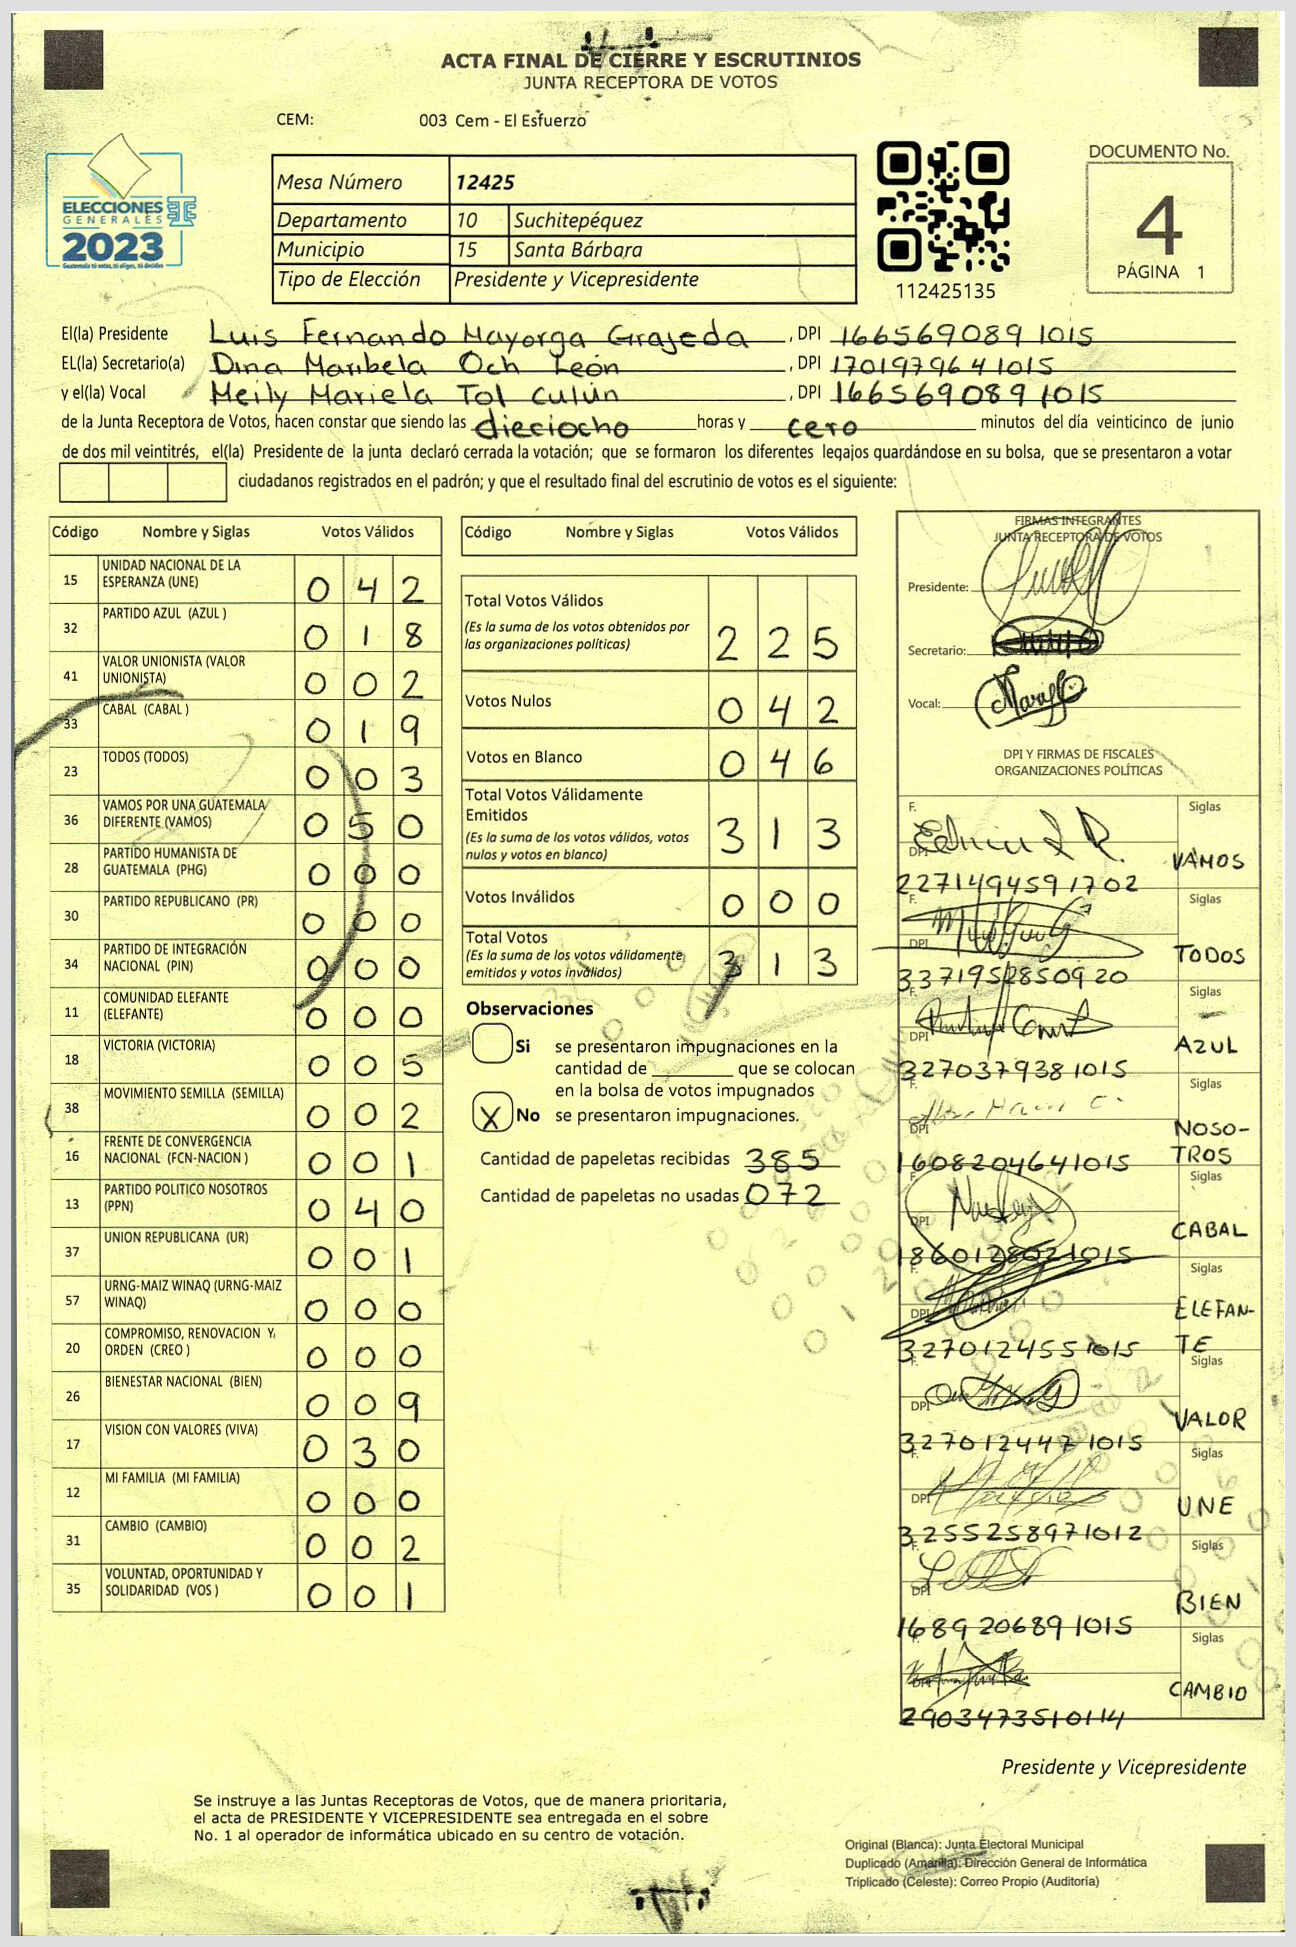 ACTA FINAL DE CIERRE Y ESCRUTINIOS
JUNTA RECEPTORA DE VOTOS
CEM: 003 Cem - El Esfuerzo
ELECCIONES
GENERALES
2023
Guatemala tú votas, tú eliges, tú decides
Mesa Número 12425
Departamento 10 Suchitepéquez
Municipio 15 Santa Bárbara
Tipo de Elección Presidente y Vicepresidente
112425135
DOCUMENTO No.
4
PÁGINA 1
El(la) Presidente Luis Fernando Mayorga Grajeda, DPI 166569089 1015
EL(la) Secretario(a) Dina Maribela Och León, DPI 170197964 1015
y el(la) Vocal Meily Mariela Tol Culún, DPI 166569089 1015
de la Junta Receptora de Votos, hacen constar que siendo las dieciocho horas y cero minutos del día veinticinco de junio
de dos mil veintitrés, el(la) Presidente de la junta declaró cerrada la votación; que se formaron los diferentes legajos guardándose en su bolsa, que se presentaron a votar
ciudadanos registrados en el padrón; y que el resultado final del escrutinio de votos es el siguiente:
Código Nombre y Siglas Votos Válidos
15 UNIDAD NACIONAL DE LA ESPERANZA (UNE) 0 4 2
32 PARTIDO AZUL (AZUL ) 0 1 8
41 VALOR UNIONISTA (VALOR UNIONISTA) 0 0 2
33 CABAL (CABAL ) 0 1 9
23 TODOS (TODOS) 0 0 3
36 VAMOS POR UNA GUATEMALA DIFERENTE (VAMOS) 0 5 0
28 PARTIDO HUMANISTA DE GUATEMALA (PHG) 0 0 0
30 PARTIDO REPUBLICANO (PR) 0 0 0
34 PARTIDO DE INTEGRACIÓN NACIONAL (PIN) 0 0 0
11 COMUNIDAD ELEFANTE (ELEFANTE) 0 0 0
18 VICTORIA (VICTORIA) 0 0 5
38 MOVIMIENTO SEMILLA (SEMILLA) 0 0 2
16 FRENTE DE CONVERGENCIA NACIONAL (FCN-NACION ) 0 0 1
13 PARTIDO POLITICO NOSOTROS (PPN) 0 4 0
37 UNION REPUBLICANA (UR) 0 0 1
57 URNG-MAIZ WINAQ (URNG-MAIZ WINAQ) 0 0 0
20 COMPROMISO, RENOVACION Y ORDEN (CREO ) 0 0 0
26 BIENESTAR NACIONAL (BIEN) 0 0 9
17 VISION CON VALORES (VIVA) 0 3 0
12 MI FAMILIA (MI FAMILIA) 0 0 0
31 CAMBIO (CAMBIO) 0 0 2
35 VOLUNTAD, OPORTUNIDAD Y SOLIDARIDAD (VOS ) 0 0 1
Código Nombre y Siglas Votos Válidos
Total Votos Válidos
(Es la suma de los votos obtenidos por
las organizaciones políticas) 2 2 5
Votos Nulos 0 4 2
Votos en Blanco 0 4 6
Total Votos Válidamente
Emitidos
(Es la suma de los votos válidos, votos
nulos y votos en blanco) 3 1 3
Votos Inválidos 0 0 0
Total Votos
(Es la suma de los votos válidamente
emitidos y votos inválidos) 3 1 3
Observaciones
Si se presentaron impugnaciones en la
cantidad de ________ que se colocan
en la bolsa de votos impugnados
X No se presentaron impugnaciones.
Cantidad de papeletas recibidas 385
Cantidad de papeletas no usadas 072
FIRMAS INTEGRANTES
JUNTA RECEPTORA DE VOTOS
Presidente:
Secretario:
Vocal:
DPI Y FIRMAS DE FISCALES
ORGANIZACIONES POLÍTICAS
F. Siglas
DPI VAMOS
227149459 1702
Siglas
DPI TODOS
3371952850920
F. Siglas
DPI AZUL
327037938 1015
F. Siglas
DPI NOSO-
TROS
1608204641015
F. Siglas
DPI CABAL
1860128021015
F. Siglas
DPI ELEFAN-
TE
3270124551015
F. Siglas
DPI VALOR
327012447 1015
F. Siglas
DPI UNE
3255258971012
F. Siglas
DPI BIEN
1689206891015
Siglas
DPI CAMBIO
2903473510114
Presidente y Vicepresidente
Se instruye a las Juntas Receptoras de Votos, que de manera prioritaria,
el acta de PRESIDENTE Y VICEPRESIDENTE sea entregada en el sobre
No. 1 al operador de informática ubicado en su centro de votación.
Original (Blanca): Junta Electoral Municipal
Duplicado (Amarilla): Dirección General de Informática
Triplicado (Celeste): Correo Propio (Auditoría)